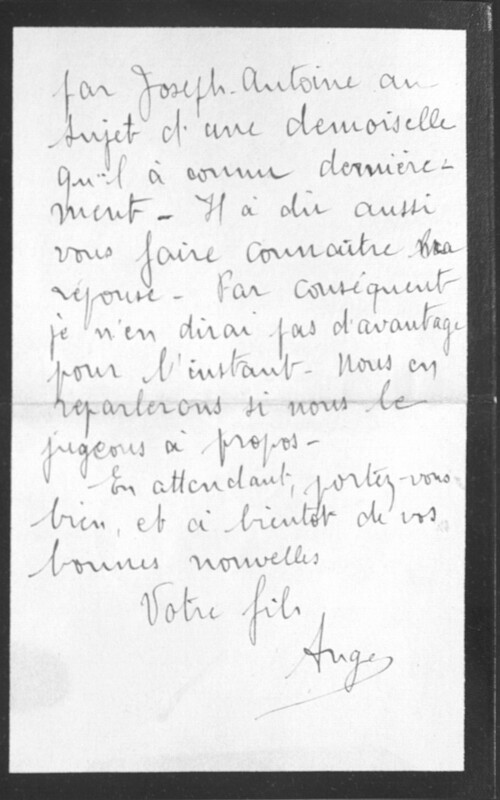 par Joseph-Antoine au
sujet d'une demoiselle
qu'il à connu dernière-
ment - Il a dû aussi
vous faire connaître ma
réponse - Par conséquent
je n'en dirai pas d'avantage
pour l'instant - Nous en
reparlerons si nous le
jugeons à propos -
En attendant, portez-vous
bien, et à bientôt de vos
bonnes nouvelles
Votre fils
Ange